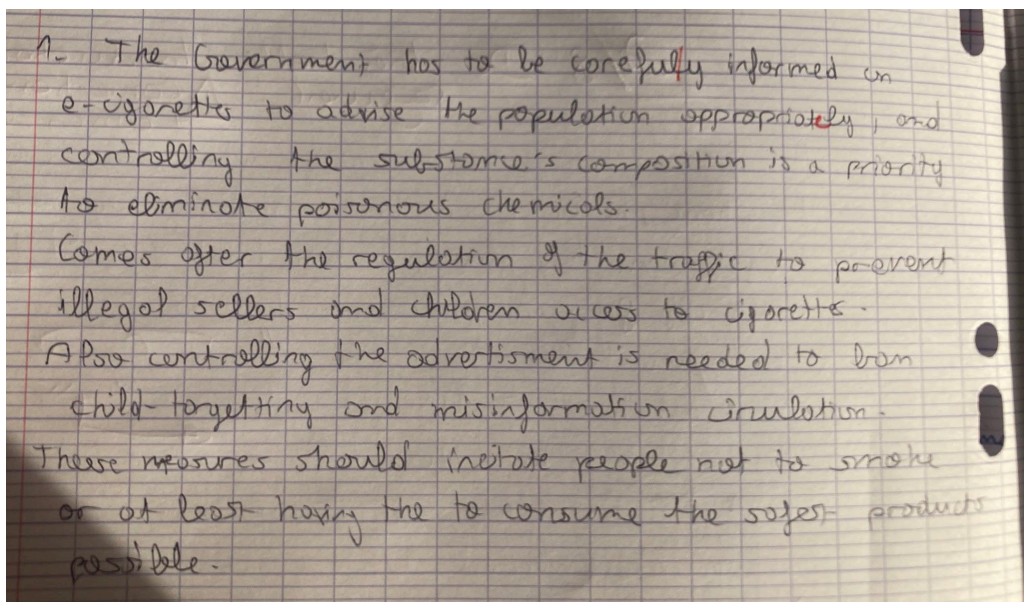 1. The Government has to be carefully informed on
e-cigarettes to advise the population appropriately, and
controlling the substance's composition is a priority
to eliminate poisonous chemicals.
Comes after the regulation of the traffic to prevent
illegal sellers and children access to cigarettes.
Also controlling the advertisment is needed to ban
child-targetting and misinformation circulation.
These measures should incitate people not to smoke
or at least having the to consume the safest products
possible.